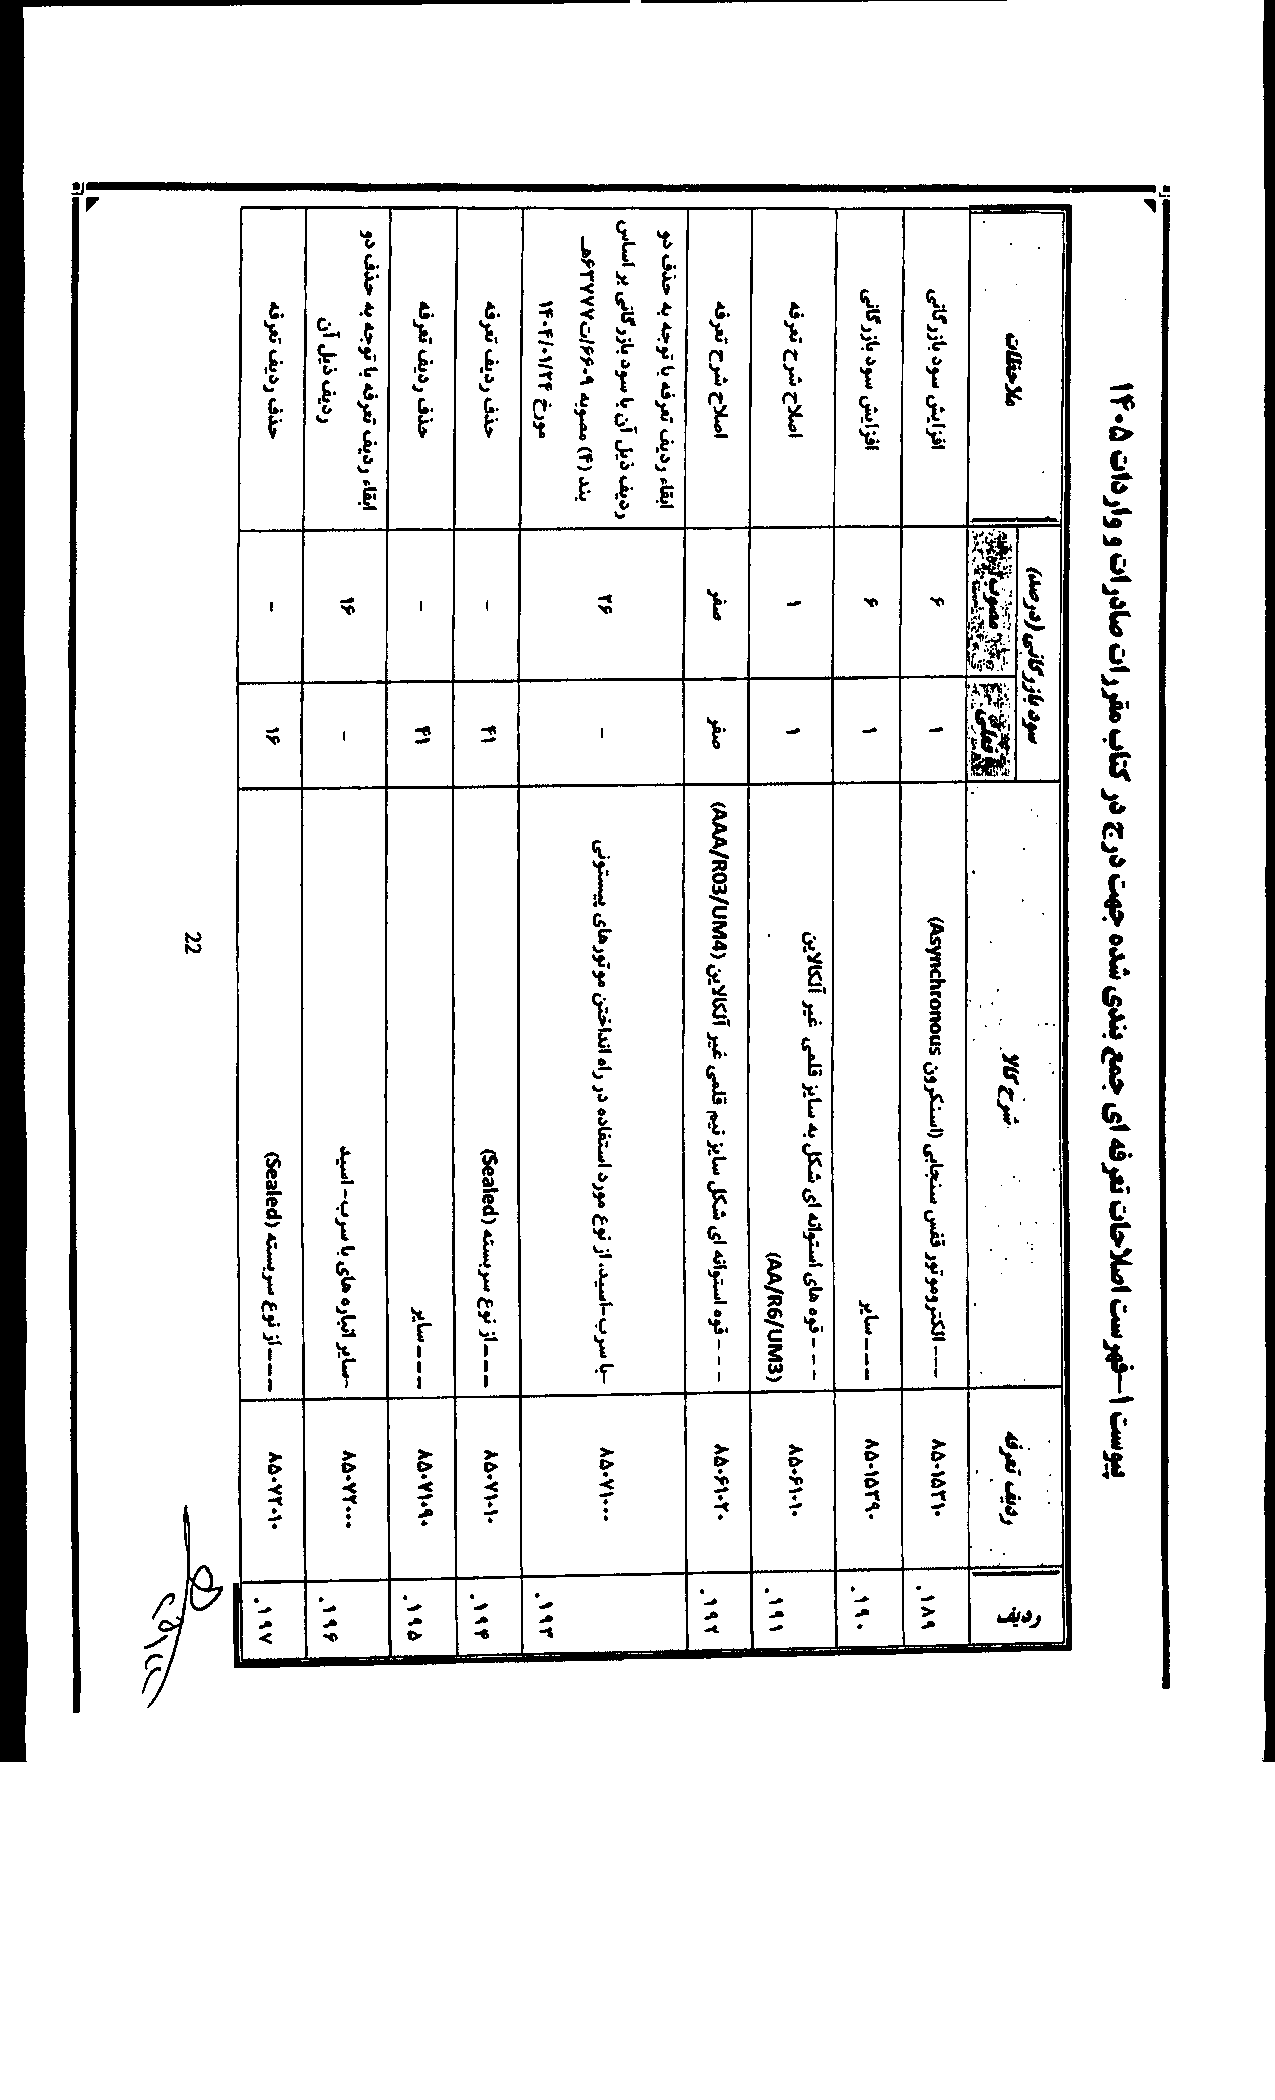 پیوست ۱- فهرست اصلاحات تعرفه ای جمع بندی شده جهت درج در کتاب مقررات صادرات و واردات ۱۴۰۵
ردیف | ردیف تعرفه | شرح کالا | سود بازرگانی (درصد) | ملاحظات
فعلی | مصوب
۱۸۹. | ۸۵۰۱۵۲۱۰ | ---الکتروموتور قفس سنجابی (اسنکرون Asynchronous) | ۱ | ۶ | افزایش سود بازرگانی
۱۹۰. | ۸۵۰۱۵۲۹۰ | ---سایر | ۱ | ۶ | افزایش سود بازرگانی
۱۹۱. | ۸۵۰۶۱۰۱۰ | - - - قوه های استوانه ای شکل به سایز قلمی غیر آلکالاین
(AA/R6/UM3) | ۱ | ۱ | اصلاح شرح تعرفه
۱۹۲. | ۸۵۰۶۱۰۲۰ | - - - قوه استوانه ای شکل سایز نیم قلمی غیر آلکالاین (AAA/R03/UM4) | صفر | صفر | اصلاح شرح تعرفه
۱۹۳. | ۸۵۰۷۱۰۰۰ | -با سرب-اسید، از نوع مورد استفاده در راه انداختن موتورهای پیستونی | - | ۲۶ | ابقاء ردیف تعرفه با توجه به حذف دو
ردیف ذیل آن با سود بازرگانی بر اساس
بند (۴) مصوبه ۶۶۰۹/ت۶۳۷۷۷هـ
مورخ ۱۴۰۴/۰۱/۲۴
۱۹۴. | ۸۵۰۷۱۰۱۰ | ---از نوع سربسته (Sealed) | ۴۱ | - | حذف ردیف تعرفه
۱۹۵. | ۸۵۰۷۱۰۹۰ | ---سایر | ۴۱ | - | حذف ردیف تعرفه
۱۹۶. | ۸۵۰۷۲۰۰۰ | -سایر انباره های با سرب-اسید | - | ۱۶ | ابقاء ردیف تعرفه با توجه به حذف دو
ردیف ذیل آن
۱۹۷. | ۸۵۰۷۲۰۱۰ | ---از نوع سربسته (Sealed) | ۱۶ | - | حذف ردیف تعرفه
22